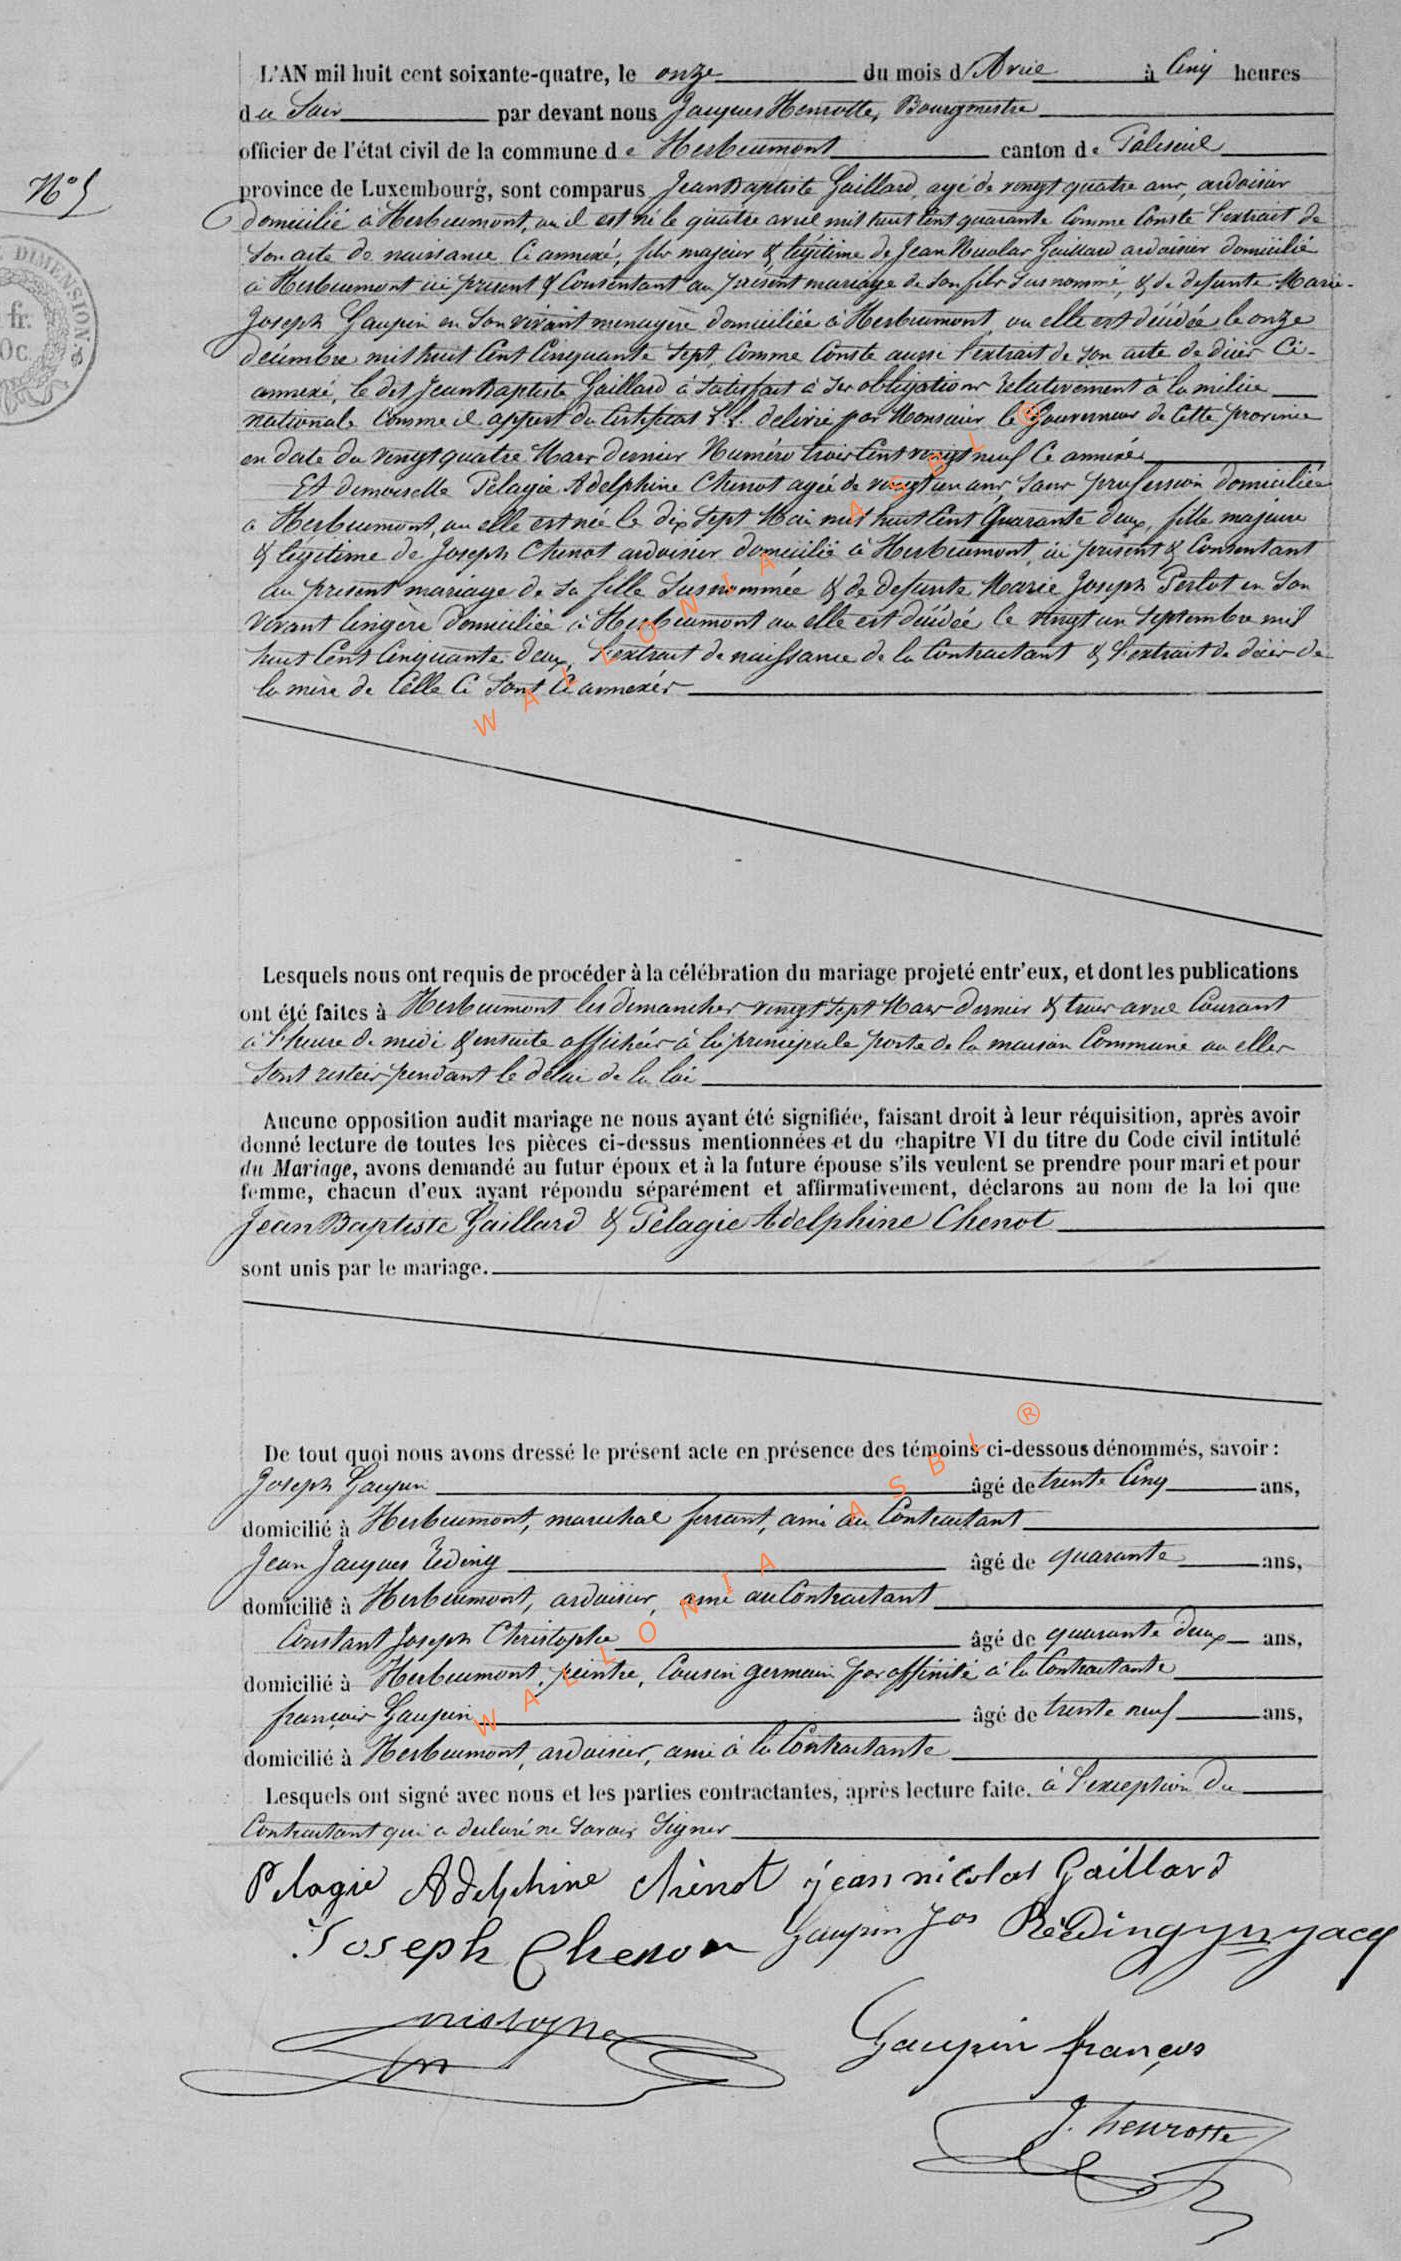 L'AN mil huit cent soixante-quatre, le onze du mois d'Avril à Cinq heures
du Soir par devant nous Jacques Henrotte, Bourgmestre
officier de l'état civil de la commune de Herbeumont canton de Paliseul
N° 5
province de Luxembourg, sont comparus Jean Baptiste Gaillard, agé de vingt quatre ans, ardoisier
DIMENSION
fr.
0c
domicilié à Herbeumont, ou il est né le quatre avril mil huit Cent quarante Comme Conste l'extrait de
Son acte de naissance Ci annexé, fils majeur & légitime de Jean Nicolas Gaillard ardoisier domicilié
à Herbeumont ici présent & Consentant au présent mariage de Son fils Susnommé, & de defunte Marie-
Joseph Gaupin en Son vivant menagère domiciliée à Herbeumont, ou elle est décédée le onze
décembre mil huit Cent Cinquante Sept, Comme Conste aussi l'extrait de Son acte de décès Ci-
annexé, le dit Jean Baptiste Gaillard à Satisfait à Ses obligations relativement à la milice
nationale Comme il appert du Certificat delivré par Monsieur le Gouverneur de Cette province
en date du vingt quatre Mars dernier Numéro trois Cent vingt neuf Ci annexé
Et demoiselle Pélagie Adelphine Chenot agée de vingt un ans, Sans profession domiciliée
à Herbeumont, ou elle est née le dix Sept Mai mil huit Cent Quarante deux, fille majeure
& légitime de Joseph Chenot ardoisier domicilié à Herbeumont, ici présent & Consentant
au présent mariage de Sa fille Susnommée & de defunte Marie Joseph Perlot en Son
vivant lingère domiciliée à Herbeumont ou elle est décédée le vingt un Septembre mil
huit Cent Cinquante deux, l'extrait de naissance de la Contractant & l'extrait de décès de
la mère de Celle Ci Sont Ci annexés
WALLONIA ASBL ®
Lesquels nous ont requis de procéder à la célébration du mariage projeté entr'eux, et dont les publications
ont été faites à Herbeumont les dimanches vingt Sept Mars dernier & trois avril Courant
à l'heure de midi & ensuite affichées à la principale porte de la maison Commune ou elles
Sont restées pendant le délai de la loi
Aucune opposition audit mariage ne nous ayant été signifiée, faisant droit à leur réquisition, après avoir
donné lecture de toutes les pièces ci-dessus mentionnées et du chapitre VI du titre du Code civil intitulé
du Mariage, avons demandé au futur époux et à la future épouse s'ils veulent se prendre pour mari et pour
femme, chacun d'eux ayant répondu séparément et affirmativement, déclarons au nom de la loi que
Jean Baptiste Gaillard & Pélagie Adelphine Chenot
sont unis par le mariage.
De tout quoi nous avons dressé le présent acte en présence des témoins ci-dessous dénommés, savoir :
Joseph Gaupin âgé de trente Cinq ans,
domicilié à Herbeumont, maréchal ferrant, ami au Contractant
Jean Jacques Réding âgé de quarante ans,
domicilié à Herbeumont, ardoisier, ami au Contractant
Constant Joseph Christophe âgé de quarante deux ans,
domicilié à Herbeumont, peintre, Cousin germain par affinité à la Contractante
françois Gaupin âgé de trente neuf ans,
domicilié à Herbeumont, ardoisier, ami à la Contractante
WALLONIA ASBL ®
Lesquels ont signé avec nous et les parties contractantes, après lecture faite. à l'exception du
Contractant qui a declaré ne Savoir Signer
Pelagie Adelphine chènot jean nicolas Gaillard
Joseph Chenot Gaupin Jos Rèding jn jacq
Gaupin françois
J. henrotte